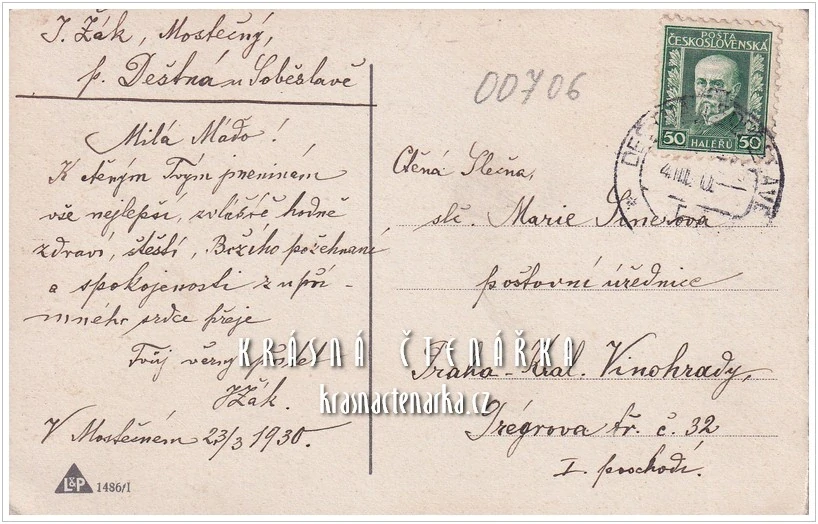 J. Žák, Mostečný,
p. Deštná u Soběslavě
Milá Máďo!
K cténým Tvým jmeninám
vše nejlepší, zvláště hodně
zdraví, štěstí, Božího požehnání
a spokojenosti z upří-
mného srdce přeje
Tvůj věrný přítel
JŽák.
V Mostečném 23/3 1930.
LP 1486/I
00706
POŠTA
ČESKOSLOVENSKÁ
50 HALÉŘŮ 50
Ctěná Slečna,
slč. Marie Simesova
poštovní úřednice
Praha - Král. Vinohrady,
Fr. č. 32
I. poschodí.
KRÁSNÁ ČTENÁŘKA
krasnactenarka.cz